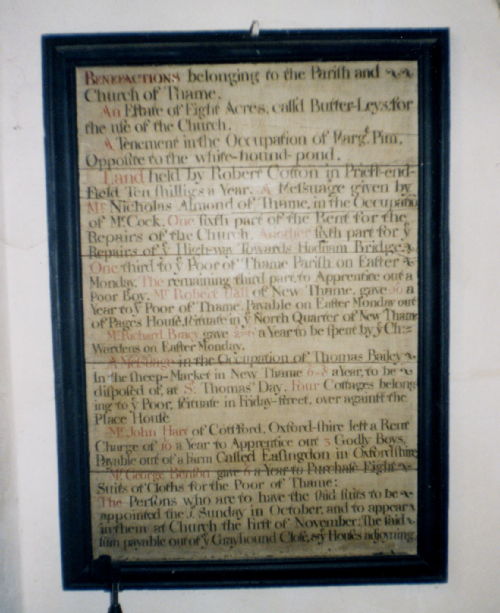 BENEFACTIONS belonging to the Parish and
Church of Thame.
An Estate of Eight Acres, call'd Butter-Leys, for
the use of the Church.
A Tenement in the Occupation of Marg.t Pim,
Opposite to the white-hound-pond.
Land held by Robert Cotton in Priest-end-
Field Ten shillings a Year. A Messuage given by
Mr. Nicholas Almond of Thame, in the Occupation
of Mr. Cock, One sixth part of the Rent for the
Repairs of the Church, Another sixth part for ye
Repairs of ye High-way Towards Hadnam Bridge,
One third to ye Poor of Thame Parish on Easter
Monday, The remaining third part to Apprentice out a
Poor Boy. Mr. Robert Hall of New Thame, gave a
Year to ye Poor of Thame, Payable on Easter Monday out
of Pages House, situate in ye North Quarter of New Thame
Mr. Richard Bracy gave a Year to be spent by ye Ch:=
Wardens on Easter Monday.
A Messuage in the Occupation of Thomas Bailey
In the sheep-Market in New Thame 6-8 a Year, to be
disposed of, at St. Thomas' Day, Four Cottages belong
ing to ye Poor, situate in Friday-street, over against the
Place House
Mr. John Hart of Cottsford, Oxford-shire left a Rent
Charge of 10 a Year to Apprentice out 3 Godly Boys,
Payable out of a farm Called Easingdon in Oxfordshire
Mr. George gave 6 a Year to Purchase Eight
Suits of Cloths for the Poor of Thame:
The Persons who are to have the said suits to be
appointed the Sunday in October, and to appear
in them at Church the first of November. The said
sum payable out of ye Grayhound Close, & ye Houses adjoyning.